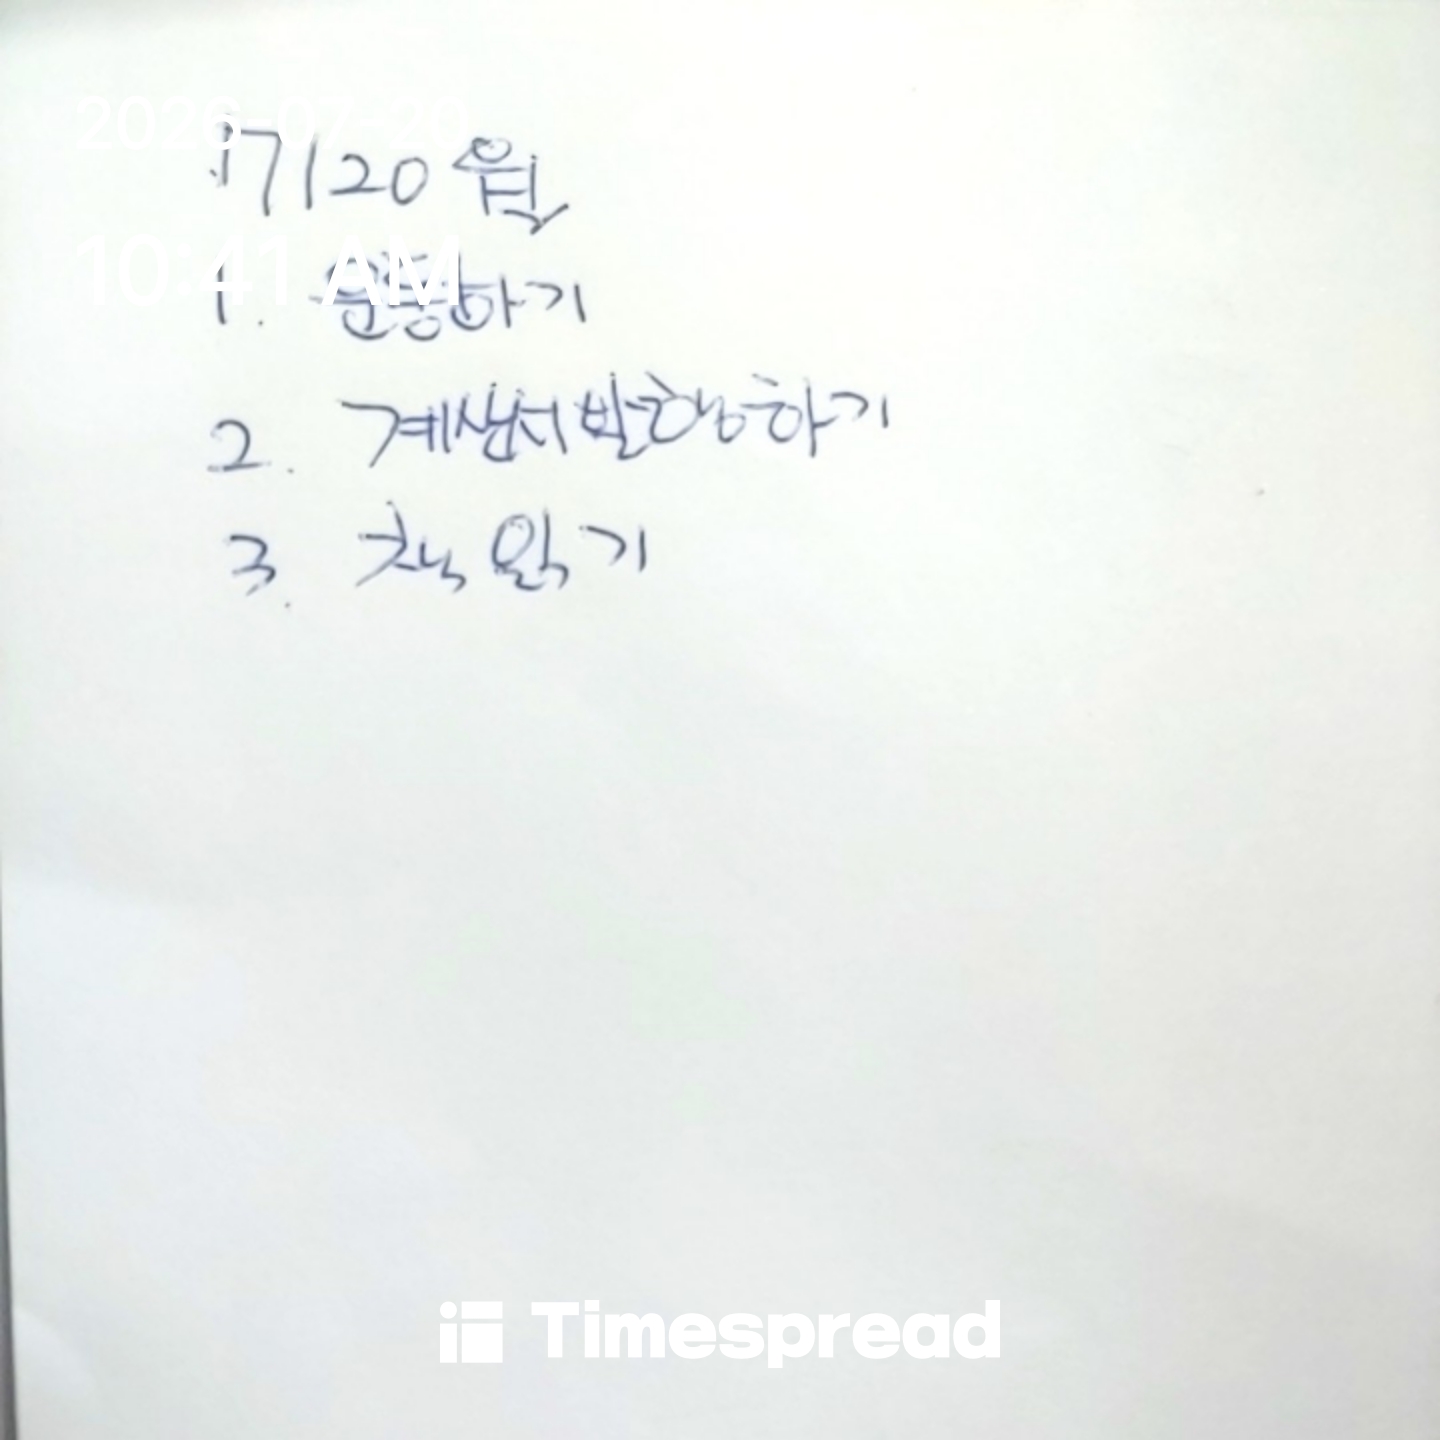 2026-07-20
7/20 월
10:41 AM
1. 운동하기
2. 계산서발행하기
3. 책 읽기
Timespread